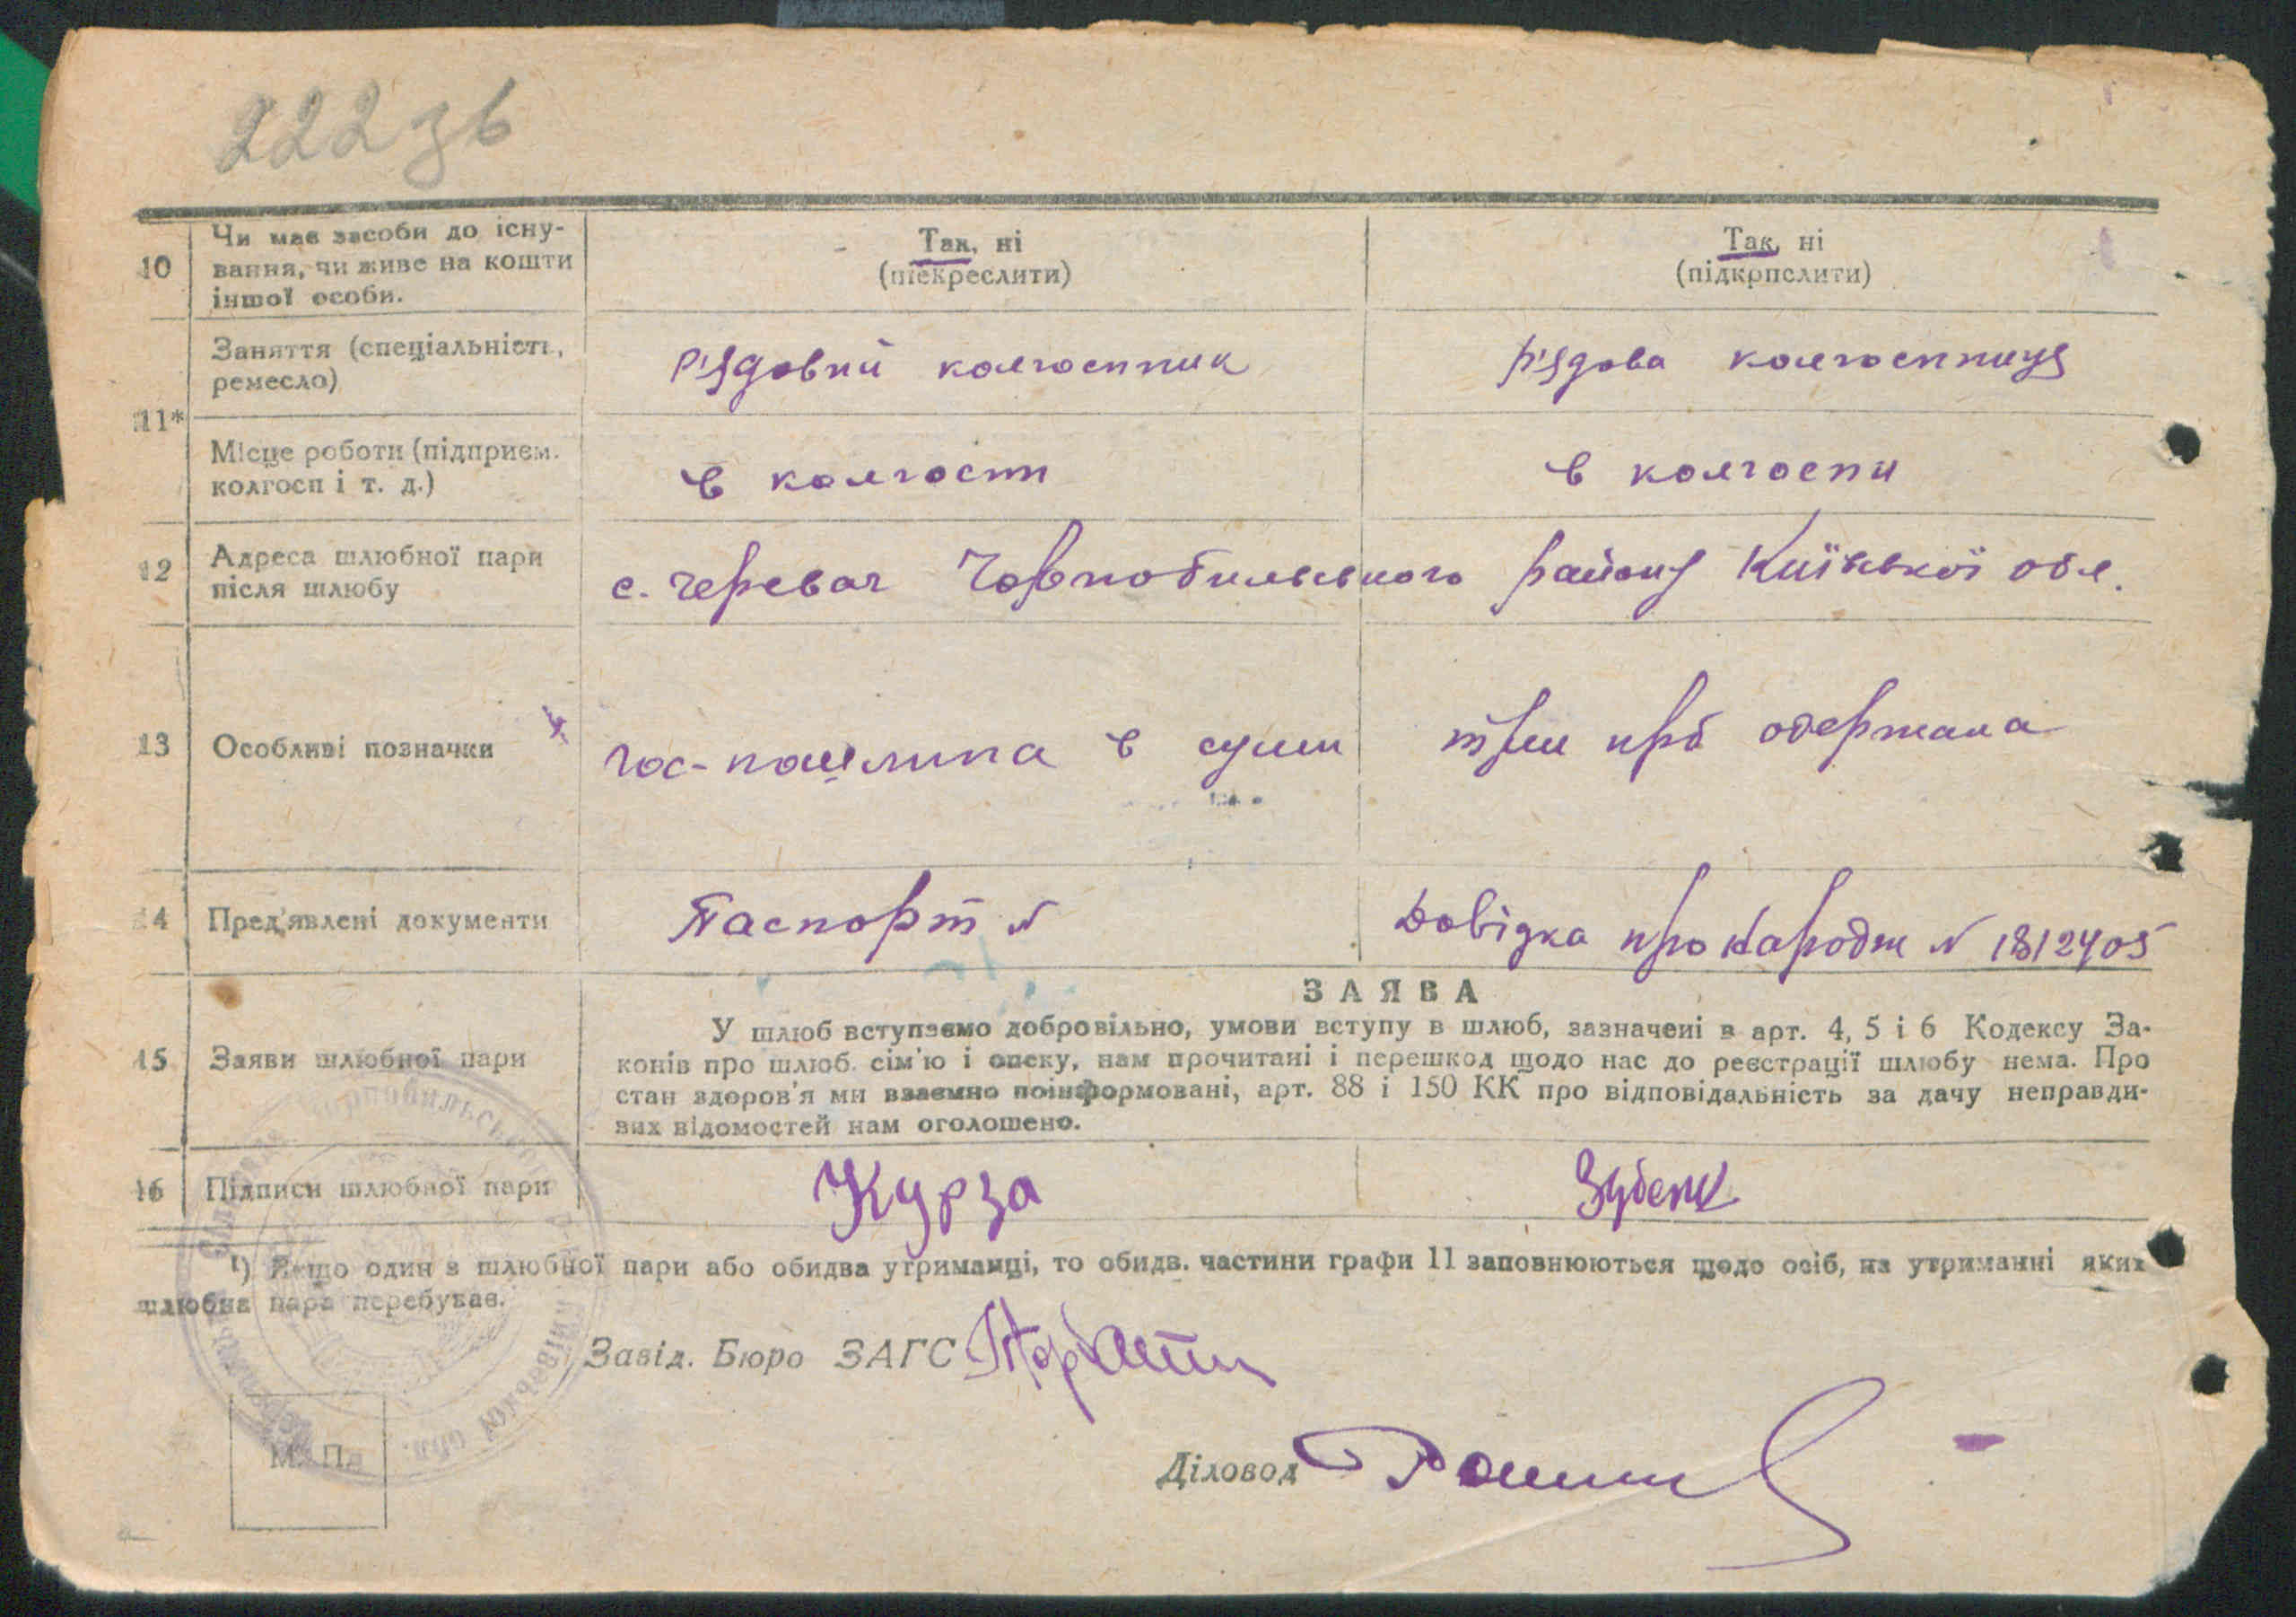 222 зв
10
Чи має засоби до існу-
вання, чи живе на кошти
іншої особи.
Так, ні
(підкреслити)
Так, ні
(підкрпслити)
11*
Заняття (спеціальність,
ремесло)
р'ядовий колгоспник
р'ядова колгоспниця
Місце роботи (підприєм.
колгосп і т. д.)
в колгоспи
в колгоспи
12
Адреса шлюбної пари
після шлюбу
с. Черевач Чорнобильського району Київської обл.
13
Особливі позначки
гос-пошлина в суми три крб одержана
14
Пред'явлені документи
Паспорт №
Довідка про народж № 1812405
15
Заяви шлюбної пари
ЗАЯВА
У шлюб вступаємо добровільно, умови вступу в шлюб, зазначені в арт. 4, 5 і 6 Кодексу За-
конів про шлюб. сім'ю і опеку, нам прочитані і перешкод щодо нас до реєстрації шлюбу нема. Про
стан здоров'я ми взаємно поінформовані, арт. 88 і 150 КК про відповідальність за дачу неправди-
вих відомостей нам оголошено.
16
Підписи шлюбної пари
Курза
Зубенк
¹) Якщо один з шлюбної пари або обидва утриманці, то обидв. частини графи 11 заповнюються щодо осіб, на утриманні яких
шлюбна пара перебуває.
Завід. Бюро ЗАГС
Діловод
М. П.